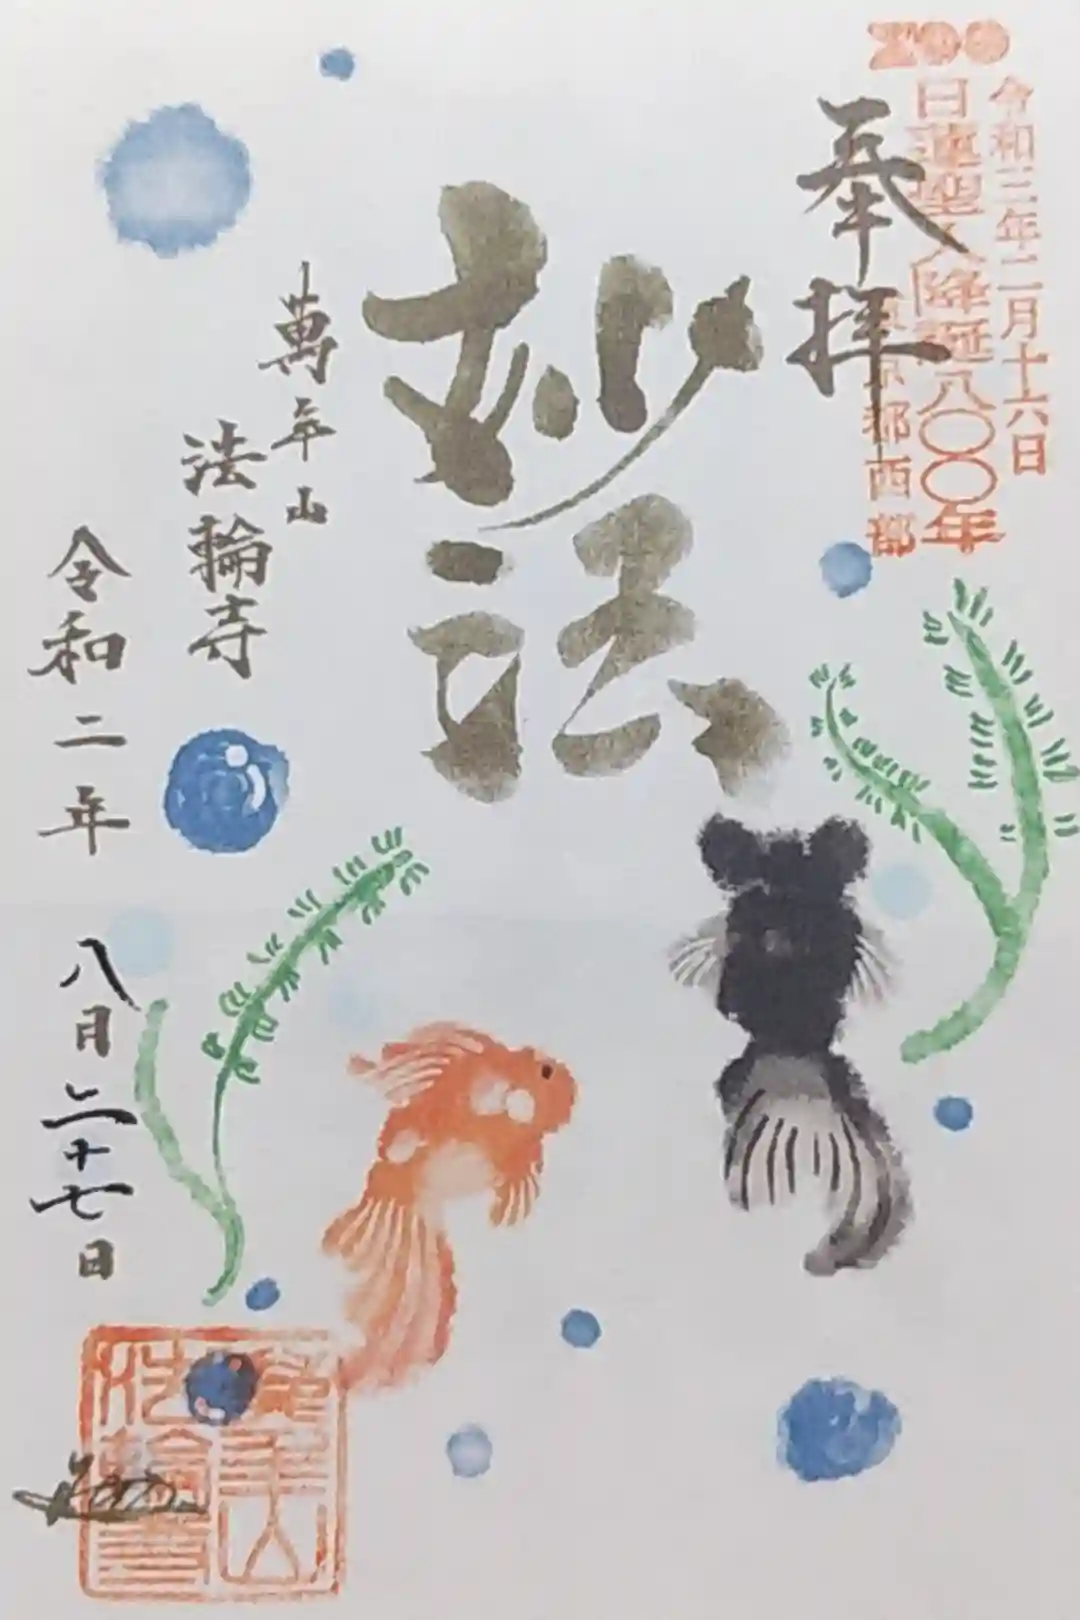 令和三年二月十六日
日蓮聖人降誕八〇〇年
東京都西部
奉拝
妙法
萬年山
法輪寺
令和二年
八月二十七日
萬年山
法輪寺